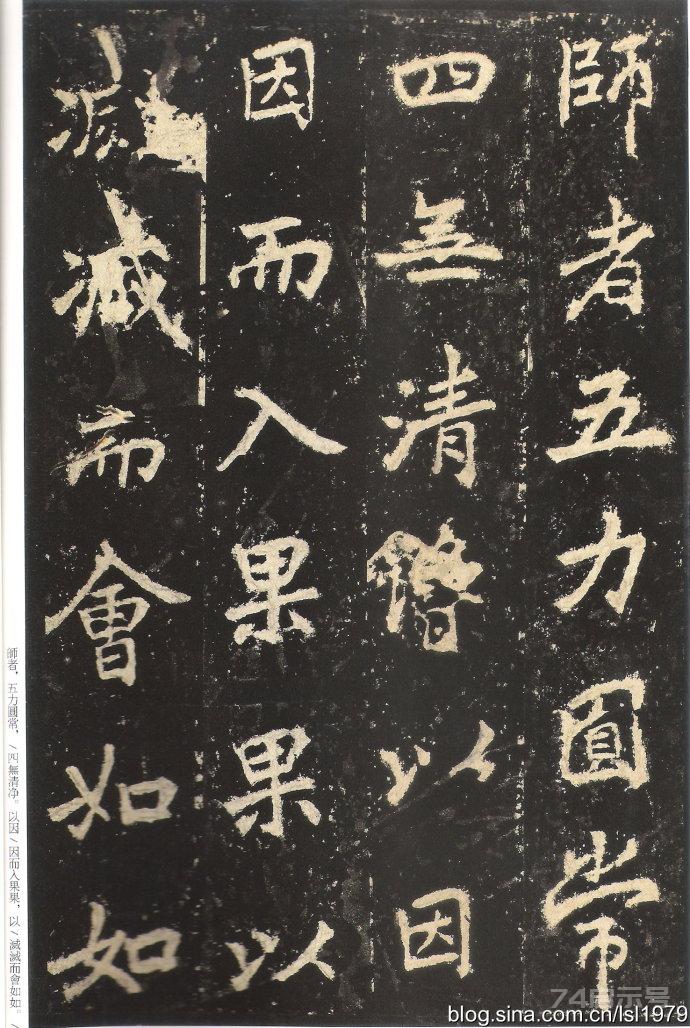 師者五力圓常
四無清淨以因
因而入果果以
滅滅而會如如
師者，五力圓常，/四無清净。以因/因而入果果，以/滅滅而會如如。/
blog.sina.com.cn/lsl1979